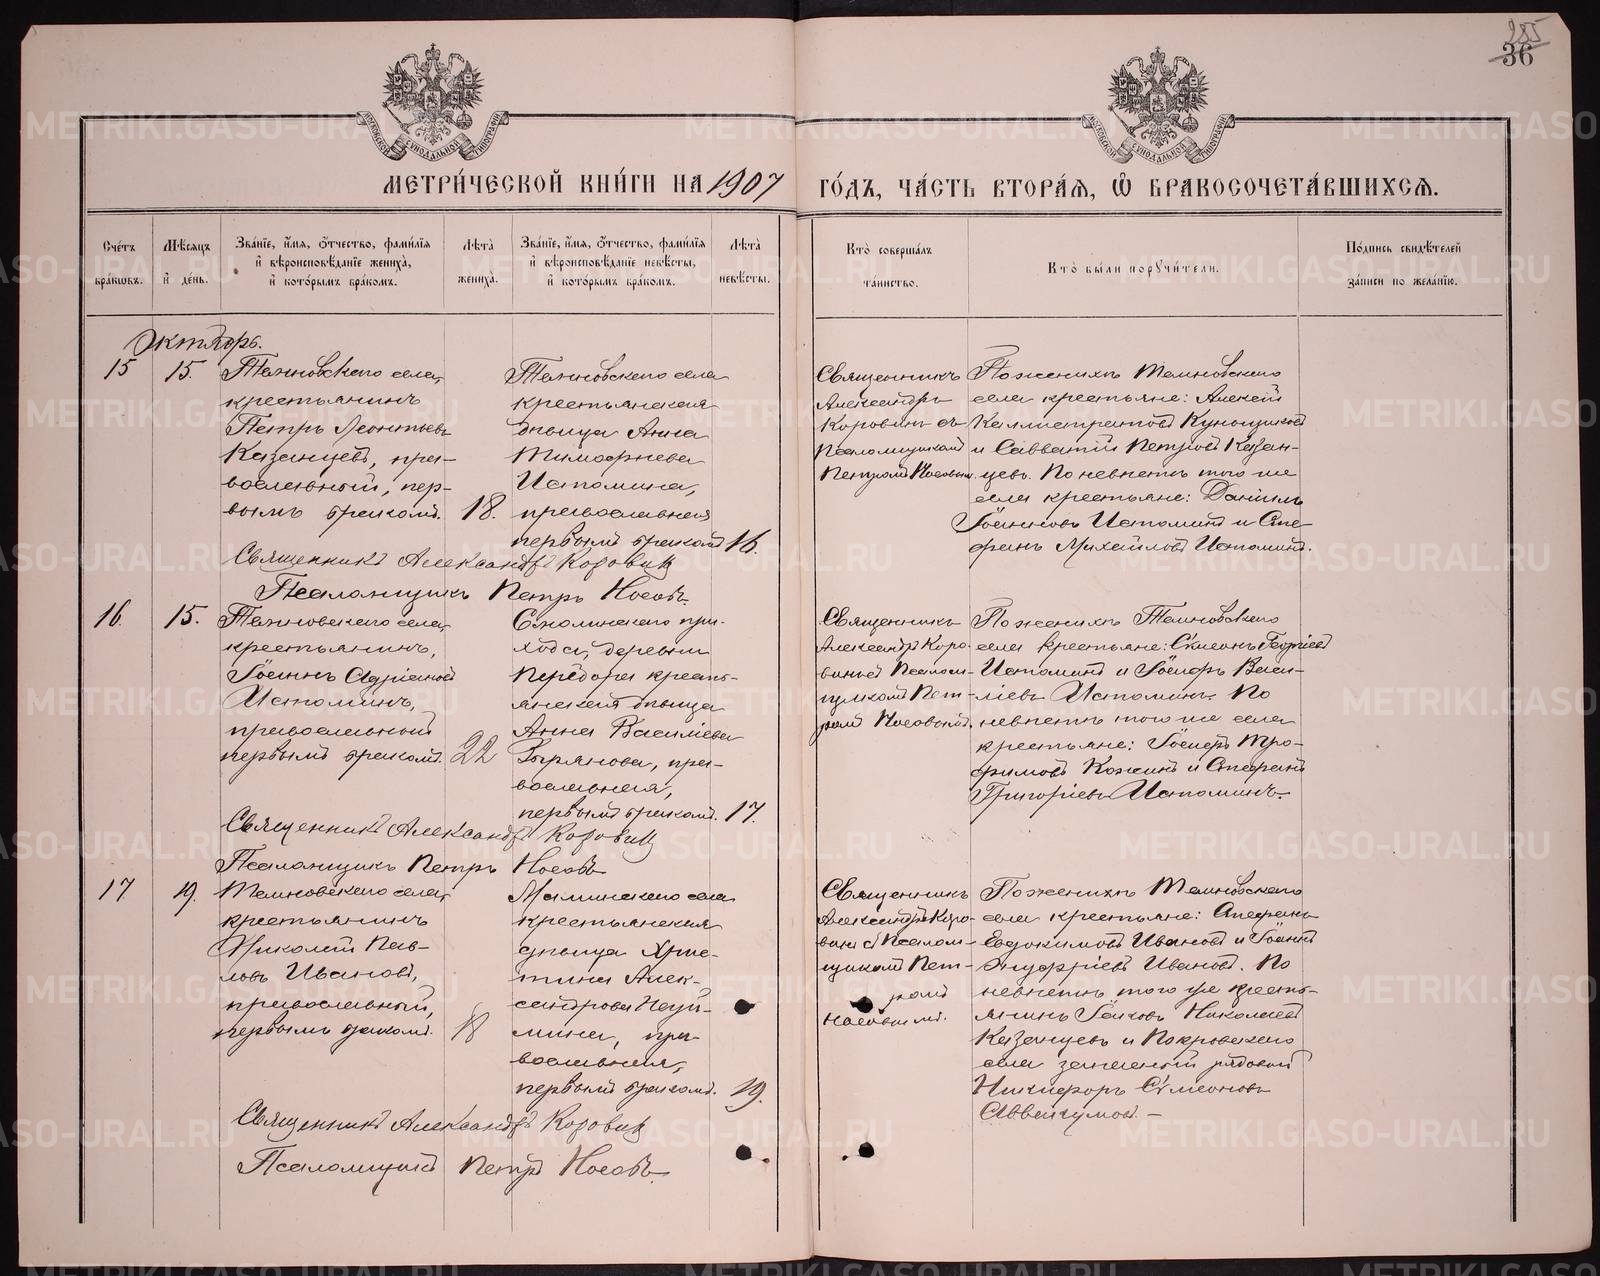 285
36
МОСКОВСКОЙ СѴНОДАЛЬНОЙ ТИПОГРАФІИ
МОСКОВСКОЙ СѴНОДАЛЬНОЙ ТИПОГРАФІИ
МЕТРИ́ЧЕСКОЙ КНИ́ГИ НА 1907 ГО́ДЪ, ЧА́СТЬ ВТОРА́Ѧ, Ѽ БРАКОСОЧЕТА́ВШИХСѦ.
Сче́тъ бра́кѡвъ.
Мѣ́сѧцъ и҆ де́нь.
Зва́нїе, и҆́мѧ, ѻ҆́тчество, фами́лїѧ и҆ вѣроисповѣ́данїе жениха̀, и҆ кото́рымъ бра́комъ.
Лѣ́та жениха̀.
Зва́нїе, и҆́мѧ, ѻ҆́тчество, фами́лїѧ и҆ вѣроисповѣ́данїе невѣ́сты, и҆ кото́рымъ бра́комъ.
Лѣ́та невѣ́сты.
Кто̀ соверша́лъ та́инство.
Кто̀ бы́ли порꙋчи́тели.
По́дпись свидѣ́телей за́писи по жела́нїю.
Октябрь.
15
15.
Темновскаго села,
крестьянинъ
Петръ Леонтьевъ
Казанцевъ, пра-
вославный, пер-
вымъ бракомъ.
18.
Темновскаго села
крестьянская
дѣвица Анна
Тимофѣева
Истомина,
православная
первымъ бракомъ
16.
Священникъ
Александръ
Коровинъ съ
Псаломщикомъ
Петромъ Носовымъ.
По женихѣ Темновскаго
села крестьяне: Алексѣй
Каллистратовъ
и Савватій Петровъ Казан-
цевъ. По невѣстѣ того же
села крестьяне: Даніилъ
Іоанновъ Истоминъ и Сте-
фанъ Михайловъ Истоминъ.
Священникъ Александръ Коровин
Псаломщикъ Петръ Носовъ.
16.
15.
Темновскаго села,
крестьянинъ,
Іоаннъ Адріановъ
Истоминъ,
православный
первымъ бракомъ.
22
Смолинскаго при-
хода, деревни
Перебора кресть-
янская дѣвица
Анна Василіева
Зырянова, пра-
вославная,
первымъ бракомъ.
17.
Священникъ
Александръ Коро-
винъ съ Псалом-
щикомъ Пет-
ромъ Носовымъ.
По женихѣ Темновскаго
села крестьяне: Сѵмеонъ Георгіевъ
Истоминъ и Іосифъ Васи-
ліевъ Истоминъ. По
невѣстѣ того же села
крестьяне: Іосифъ Тро-
фимовъ Кожинъ и Стефанъ
Григоріевъ Истоминъ.
Священникъ Александръ Коровин
Псаломщикъ Петръ Носовъ
17
19.
Темновскаго села,
крестьянинъ
Николай Пав-
ловъ Ивановъ,
православный,
первымъ бракомъ.
18
Маминскаго села
крестьянская
дѣвица Хрис-
тина Алек-
сандрова Наум-
мина, пра-
вославная,
первымъ бракомъ.
19.
Священникъ
Александръ Коро-
винъ съ Псалом-
щикомъ Пет-
ромъ
Носовымъ.
По женихѣ Темновскаго
села крестьяне: Стефанъ
Евдокимовъ Ивановъ и Іоаннъ
Онуфріевъ Ивановъ. По
невѣстѣ того же кресть-
янинъ Іаковъ Николаевъ
Казанцевъ и Покровскаго
села запасный рядовой
Никифоръ Сѵмеоновъ
Аввакумовъ. –
Священникъ Александръ Коровин
Псаломщикъ Петръ Носовъ.
METRIKI.GASO-URAL.RU